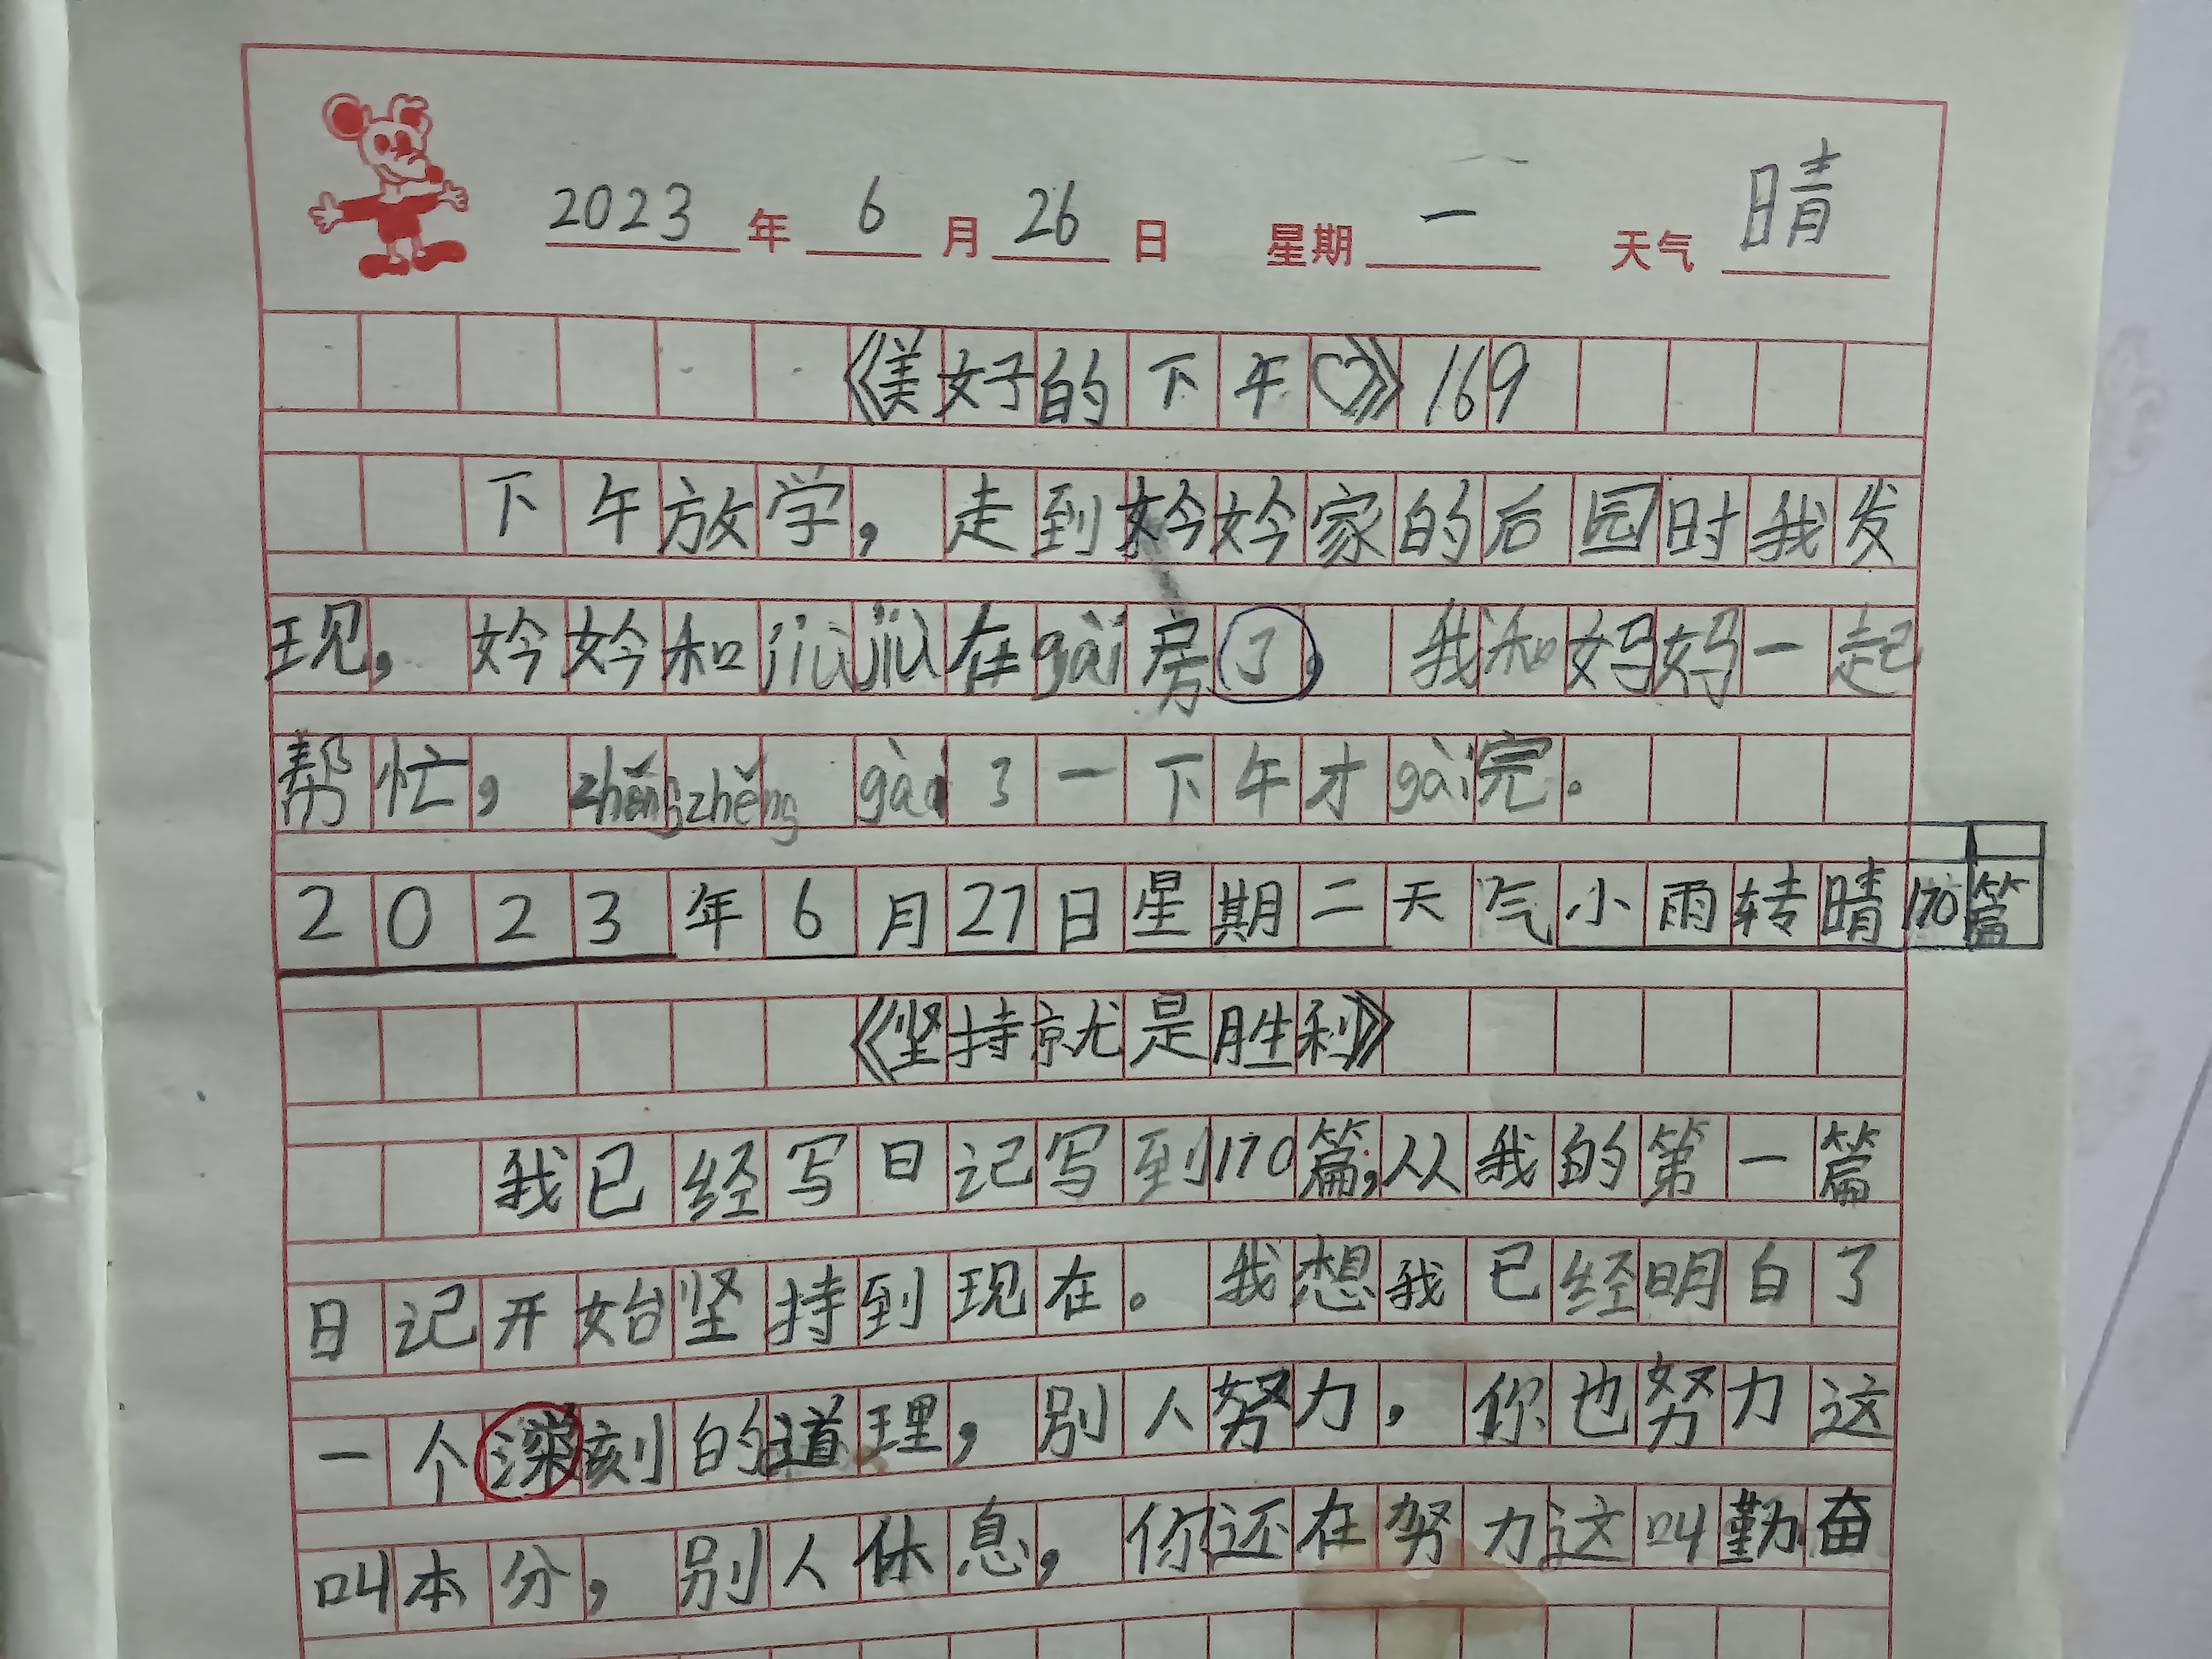 2023年6月26日 星期一 天气晴
《美好的下午♡》169
下午放学，走到妗妗家的后园时我发
现，妗妗和jiùjiù在gài房了，我和妈妈一起
帮忙，zhěngzhěng gài了一下午才gài完。
2023年6月27日星期二天气小雨转晴170篇
《坚持就是胜利》
我已经写日记写到170篇，从我的第一篇
日记开始坚持到现在。我想我已经明白了
一个深刻的道理，别人努力，你也努力这
叫本分，别人休息，你还在努力这叫勤奋